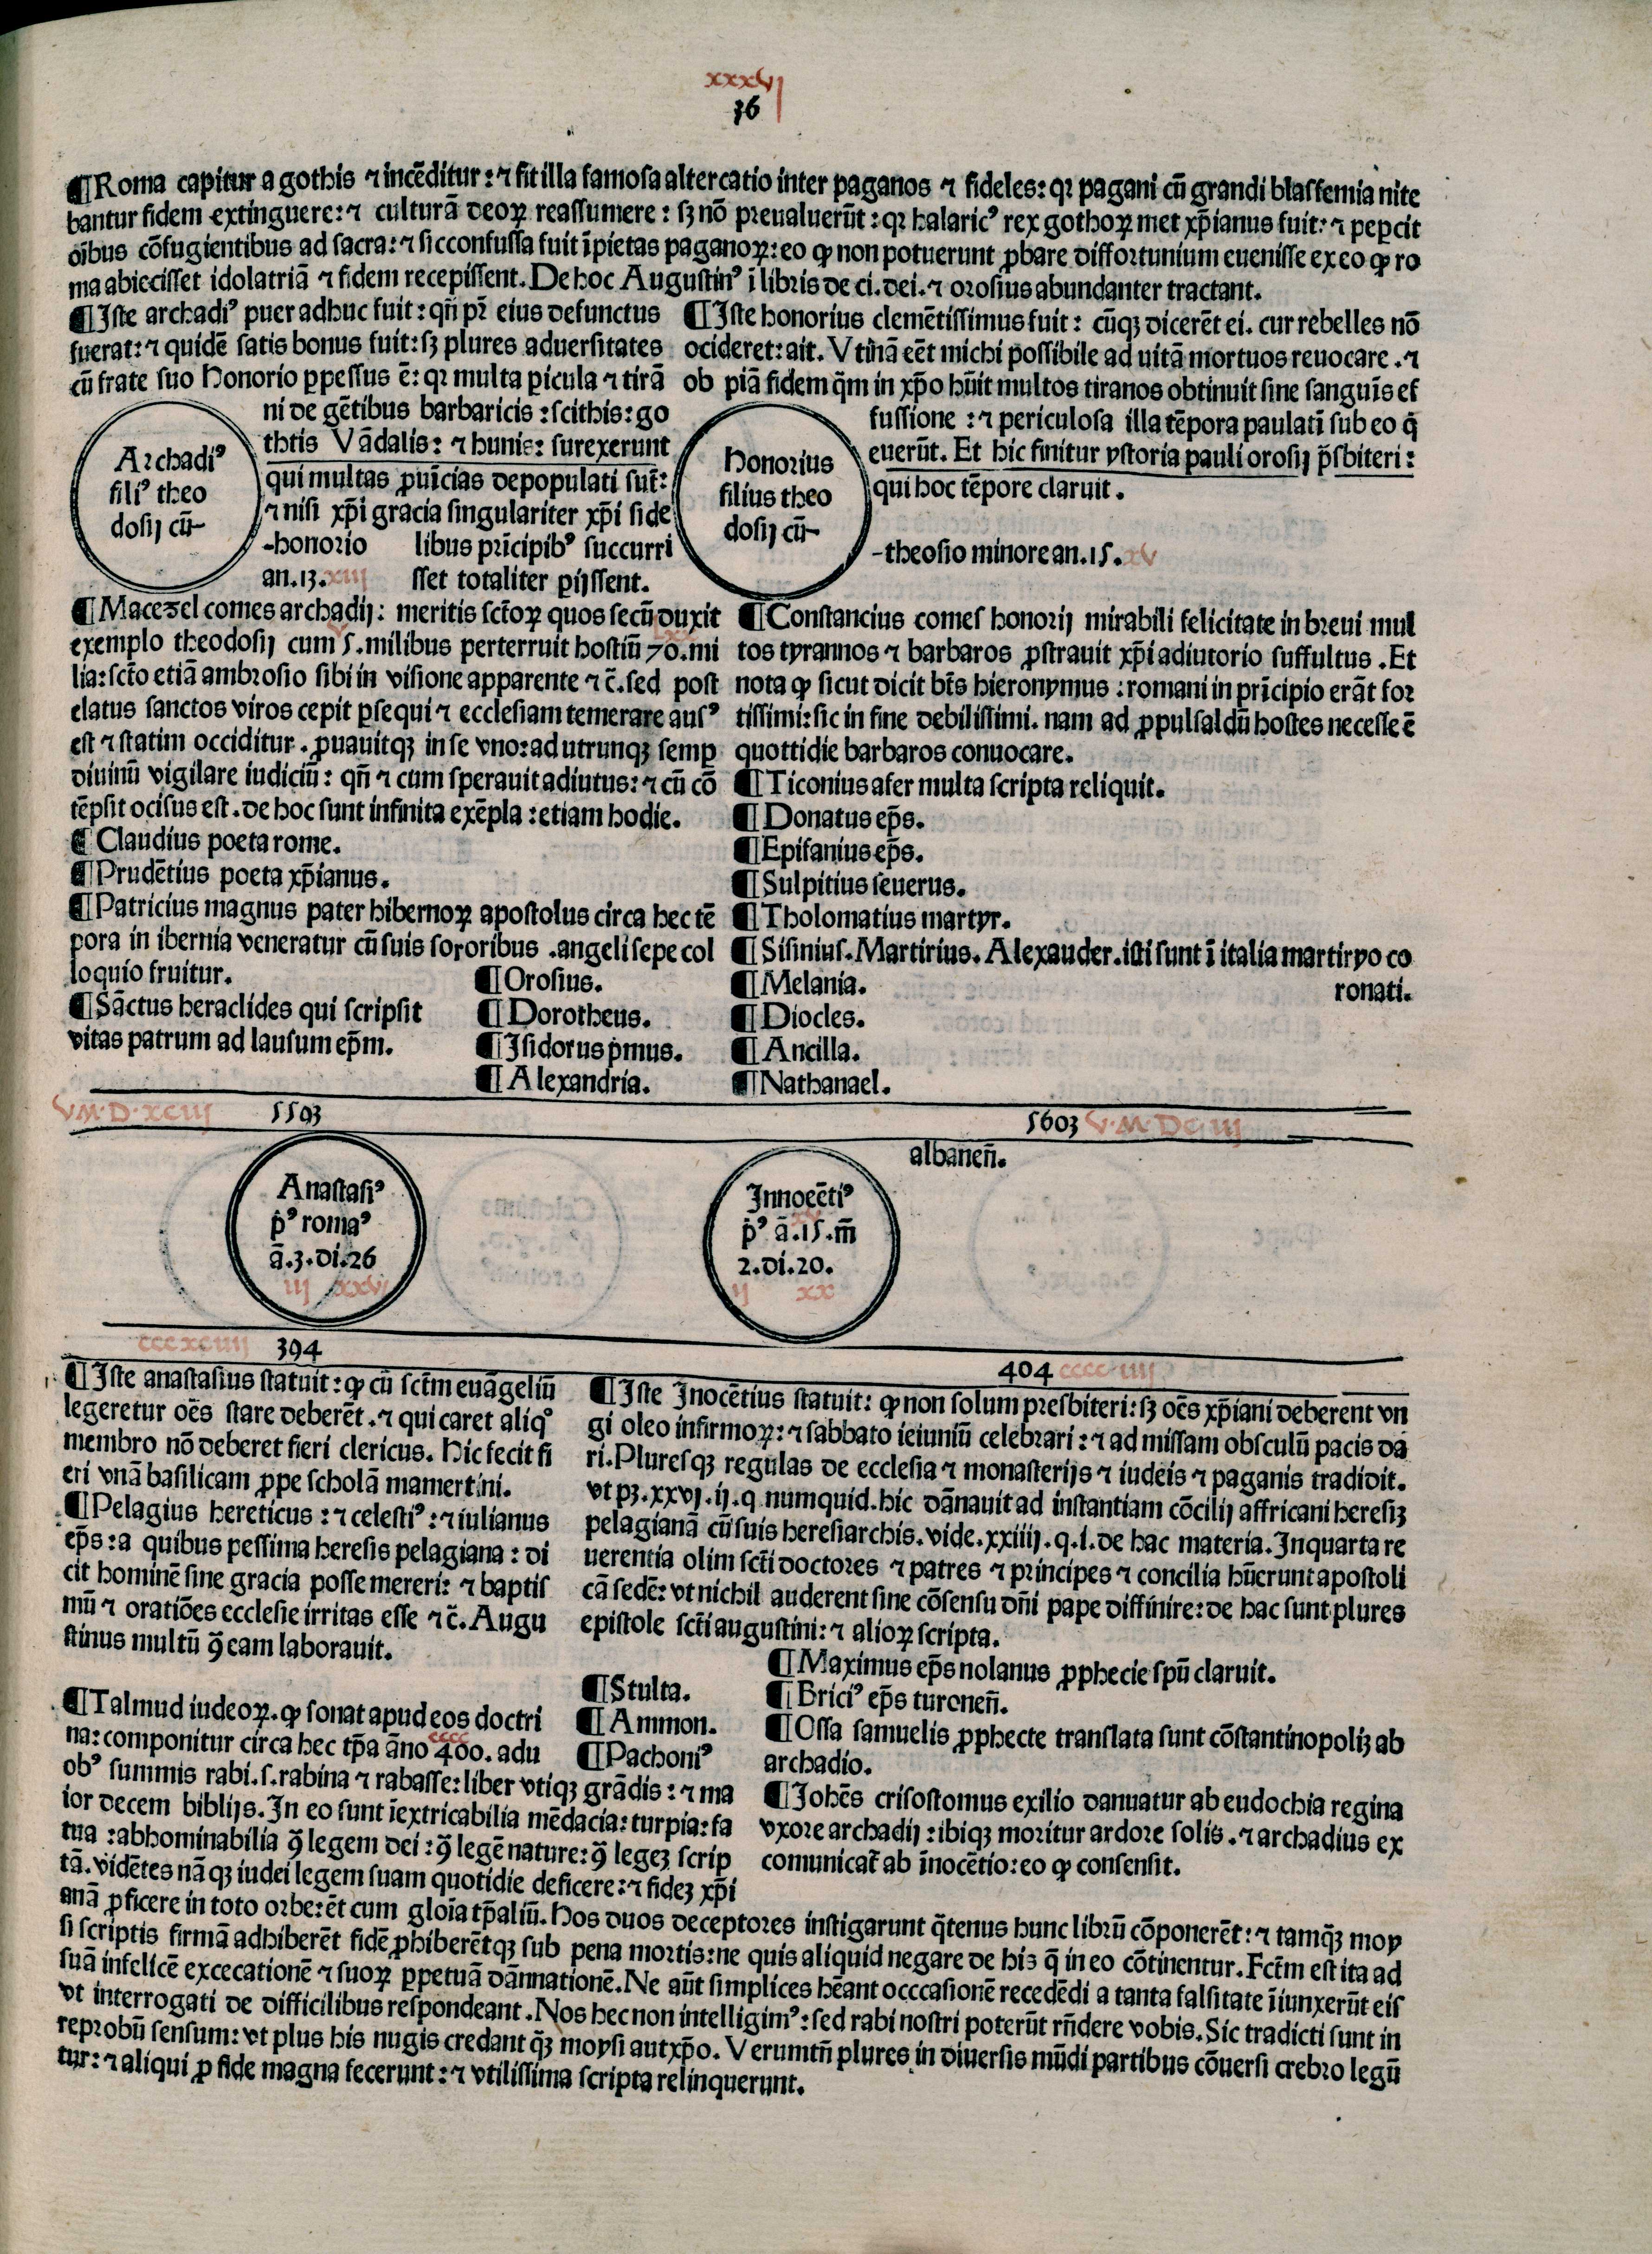 xxxvj
36
¶Roma capitur a gothis ⁊ incēditur: ⁊ fit illa famosa altercatio inter paganos ⁊ fideles: qꝛ pagani cū grandi blasfemia nite
bantur fidem extinguere: ⁊ culturā deoꝝ reassumere: sꝫ nō preualuerūt: qꝛ halaricꝰ rex gothoꝝ met xp̄ianus fuit: ⁊ peꝑcit
oībus cōfugientibus ad sacra: ⁊ sicconfussa fuit īpietas paganoꝝ: eo ꝙ non potuerunt ꝓbare diffortunium euenisse ex eo ꝙ ro
ma abiecisset idolatriā ⁊ fidem recepissent. De hoc Augustinꝰ ī libris de ci. dei. ⁊ orosius abundanter tractant.
¶Iste archadiꝰ puer adhuc fuit: qn̄ pr̄ eius defunctus
fuerat: ⁊ quidē satis bonus fuit: sꝫ plures aduersitates
cū frate suo honorio ꝑpessus ē: qꝛ multa ꝑicula ⁊ tirā
ni de gētibus barbaricis: scithis: go
thtis Vādalis: ⁊ hunis: surexerunt
qui multas ꝓuīcias depopulati sūt:
⁊ nisi xp̄i gracia singulariter xp̄i fide
libus prīcipibꝰ succurri
sset totaliter ꝑijssent.
Archadiꝰ
filiꝰ theo
dosij cū-
-honorio
an. 13. xiij
¶Iste honorius clemētissimus fuit: cūqꝫ dicerēt ei. cur rebelles nō
ocideret: ait. Vtinā eēt michi possibile ad uitā mortuos reuocare. ⁊
ob piā fidem q̄m in xp̄o hūit multos tiranos obtinuit sine sanguīs ef
fussione: ⁊ periculosa illa tēpora paulatī sub eo q̄
euerūt. Et hic finitur ystoria pauli orosij p̄sbiteri:
qui hoc tēpore claruit.
Honorius
filius theo
dosij cū-
-theosio minore an. 15. xv
¶Macezel comes archadij: meritis sctōꝝ quos secū duxit
exemplo theodosij cum 5. milibus perterruit hostiū 70. mi
lia: sctō etiā ambrosio sibi in visione apparente ⁊ c̄. sed post
elatus sanctos viros cepit ꝑsequi ⁊ ecclesiam temerare ausꝰ
est ⁊ statim occiditur. ꝓuauitqꝫ in se vno: ad utrunqꝫ semꝑ
diuinū vigilare iudiciū: qn̄ ⁊ cum sperauit adiutus: ⁊ cū cō
tēpsit ocisus est. de hoc sunt infinita exēpla: etiam hodie.
¶Claudius poeta rome.
¶Prudētius poeta xp̄ianus.
¶Patricius magnus pater hibernoꝝ apostolus circa hec tē
pora in ibernia veneratur cū suis sororibus. angeli sepe col
loquio fruitur.
¶Sāctus heraclides qui scripsit
vitas patrum ad lausum ep̄m.
¶Orosius.
¶Dorotheus.
¶Isidorus p̄mus.
¶Alexandria.
¶Constancius comes honorij mirabili felicitate in breui mul
tos tyrannos ⁊ barbaros ꝓstrauit xp̄i adiutorio suffultus. Et
nota ꝙ sicut dicit bt̄s hieronymus: romani in prīcipio erāt for
tissimi: sic in fine debilissimi. nam ad ꝓpulsaldū hostes necesse ē
quottidie barbaros conuocare.
¶Ticonius afer multa scripta reliquit.
¶Donatus ep̄s.
¶Epifanius ep̄s.
¶Sulpitius seuerus.
¶Tholomatius martyr.
¶Sisinius. Martirius. Alexauder. isti sunt ī italia martiryo co
ronati.
¶Melania.
¶Diocles.
¶Ancilla.
¶Nathanael.
V.M.D.XCIIJ 5593
5603 V.M.DC.iij
Anastasiꝰ
p̄ꝰ romaꝰ
ā. 3. di. 26
iij xxvj
albanen̄.
Innocētiꝰ
p̄ꝰ ā. 15. m̄
2. di. 20.
ij xx
cccxciiij 394
404 cccc iiij
¶Iste anastasius statuit: ꝙ cū sctm̄ euāgeliū
legeretur oēs stare deberēt. ⁊ qui caret aliqꝰ
membro nō deberet fieri clericus. Hic fecit fi
eri vnā basilicam ꝓpe scholā mamertini.
¶Pelagius hereticus: ⁊ celestiꝰ: ⁊ iulianus
ep̄s: a quibus pessima heresis pelagiana: di
cit hominē sine gracia posse mereri: ⁊ baptis
mū ⁊ oratiōes ecclesie irritas esse ⁊ c̄. Augu
stinus multū ꝯ eam laborauit.
¶Iste Inocētius statuit: ꝙ non solum presbiteri: sꝫ oēs xp̄iani deberent vn
gi oleo infirmoꝝ: ⁊ sabbato ieiuniū celebrari: ⁊ ad missam obsculū pacis da
ri. Pluresqꝫ regulas de ecclesia ⁊ monasterijs ⁊ iudeis ⁊ paganis tradidit.
vt pꝫ. xxvj. ij. q. numquid. hic dānauit ad instantiam cōcilij affricani heresiꝫ
pelagianā cū suis heresiarchis. vide. xxiiij. q. i. de hac materia. Inquarta re
uerentia olim sctī doctores ⁊ patres ⁊ principes ⁊ concilia hūerunt apostoli
cā sedē: vt nichil auderent sine cōsensu dn̄i pape diffinire: de hac sunt plures
epistole sctī augustini: ⁊ alioꝝ scripta.
¶Maximus ep̄s nolanus ꝓphecie spū claruit.
¶Briciꝰ ep̄s turonen̄.
¶Ossa samuelis ꝓphecte translata sunt cōstantinopoliꝫ ab
archadio.
¶Johēs crisostomus exilio danuatur ab eudochia regina
vxore archadij: ibiqꝫ moritur ardore solis. ⁊ archadius ex
comunicat̄ ab īnocētio: eo ꝙ consensit.
¶Stulta.
¶Ammon.
¶Pachoniꝰ
¶Talmud iudeoꝝ. ꝙ sonat apud eos doctri
na: componitur circa hec tp̄a āno 400. adu
cccc
obꝰ summis rabi. s. rabina ⁊ rabasse: liber vtiqꝫ grādis: ⁊ ma
ior decem biblijs. In eo sunt īextricabilia mēdacia: turpia: fa
tua: abhominabilia ꝯ legem dei: ꝯ legē nature: ꝯ legeꝫ scrip
tā. vidētes nāqꝫ iudei legem suam quotidie deficere: ⁊ fideꝫ xp̄i
anā ꝓficere in toto orbe: ēt cum gloīa tp̄aliū. Hos duos deceptores instigarunt q̄tenus hunc librū cōponerēt: ⁊ tamqꝫ moy
si scriptis firmā adhiberēt fidē ꝓhiberētqꝫ sub pena mortis: ne quis aliquid negare de his q̄ in eo cōtinentur. Fctm̄ est ita ad
suā infelicē excecationē ⁊ suoꝝ ꝑpetuā dānationē. Ne aūt simplices hēant occcasionē recedēdi a tanta falsitate īiunxerūt eis
vt interrogati de difficilibus respondeant. Nos hec non intelligimꝰ: sed rabi nostri poterūt rn̄dere vobis. Sic tradicti sunt in
reprobū sensum: vt plus his nugis credant qꝫ moysi aut xp̄o. Verumtn̄ plures in diuersis mūdi partibus cōuersi crebro legū
tur: ⁊ aliqui ꝓ fide magna fecerunt: ⁊ vtilissima scripta relinquerunt.